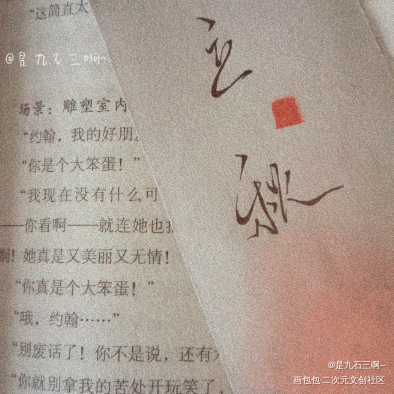 "这简直太
@是九石三啊~
场景：雕塑室内
"约翰，我的好朋
"你是个大笨蛋！"
"我现在没有什么可
——你看啊——就连她也
啊！她真是又美丽又无情！
"你真是个大笨蛋！"
"哦，约翰……"
"别废话了！你不是说，还有
"你就别拿我的苦处开玩笑了，
立
秋
@是九石三啊~
画包包·二次元文创社区